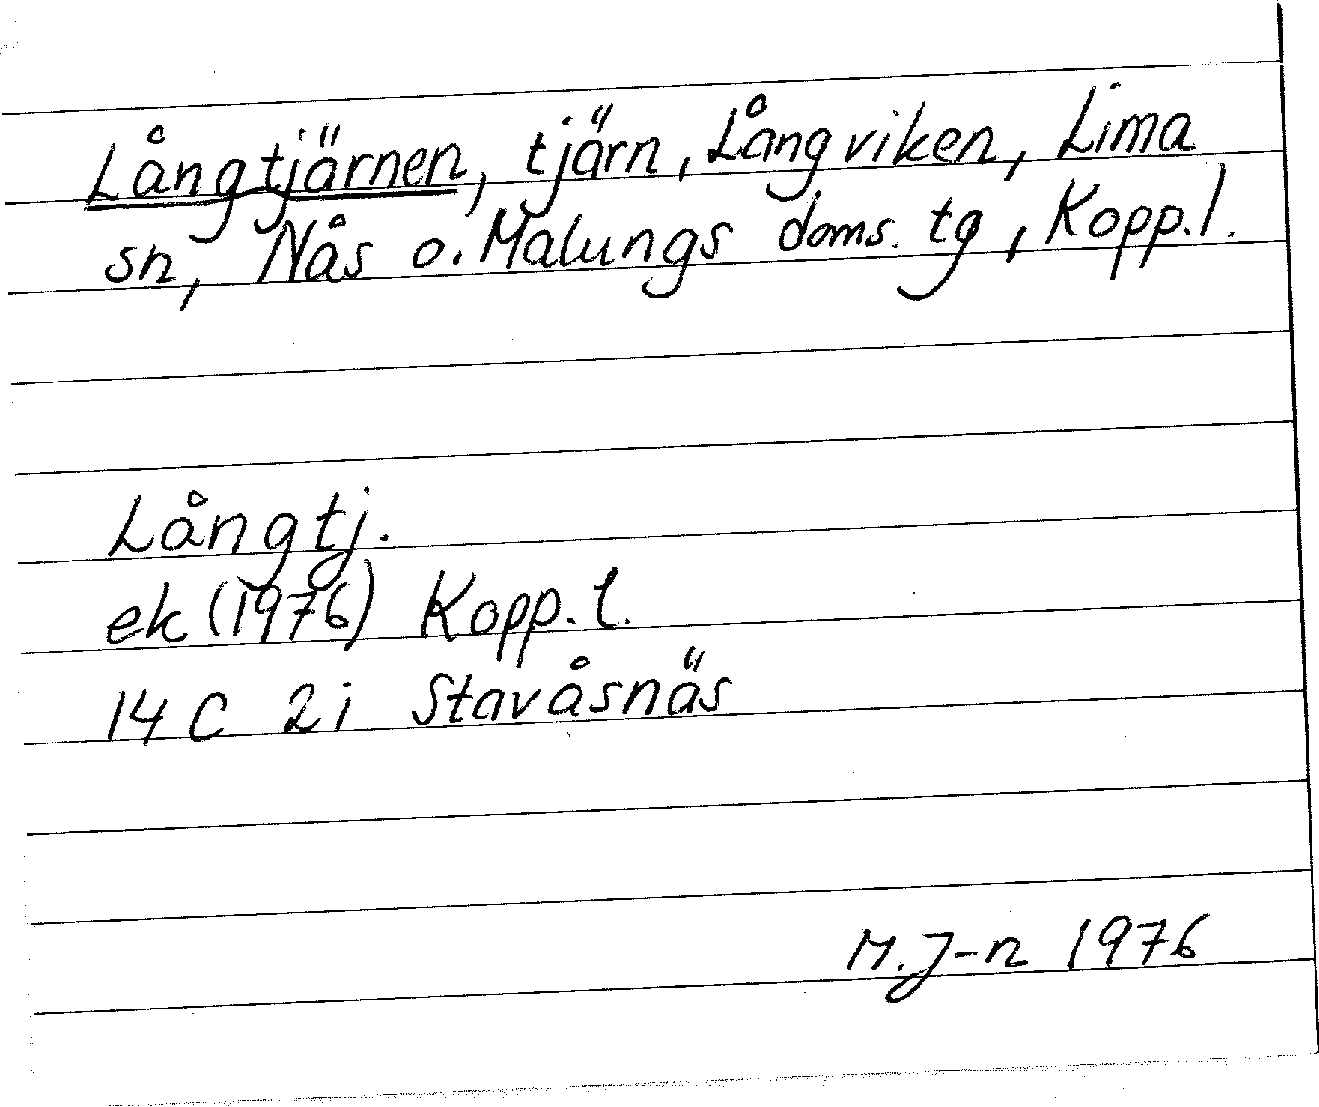 Långtjärnen, tjärn, Långviken, Lima
sn, Nås o. Malungs doms. tg, Kopp. l.
Långtj.
ek (1976) Kopp. l.
14 C 2i Stavåsnäs
M. J-n 1976